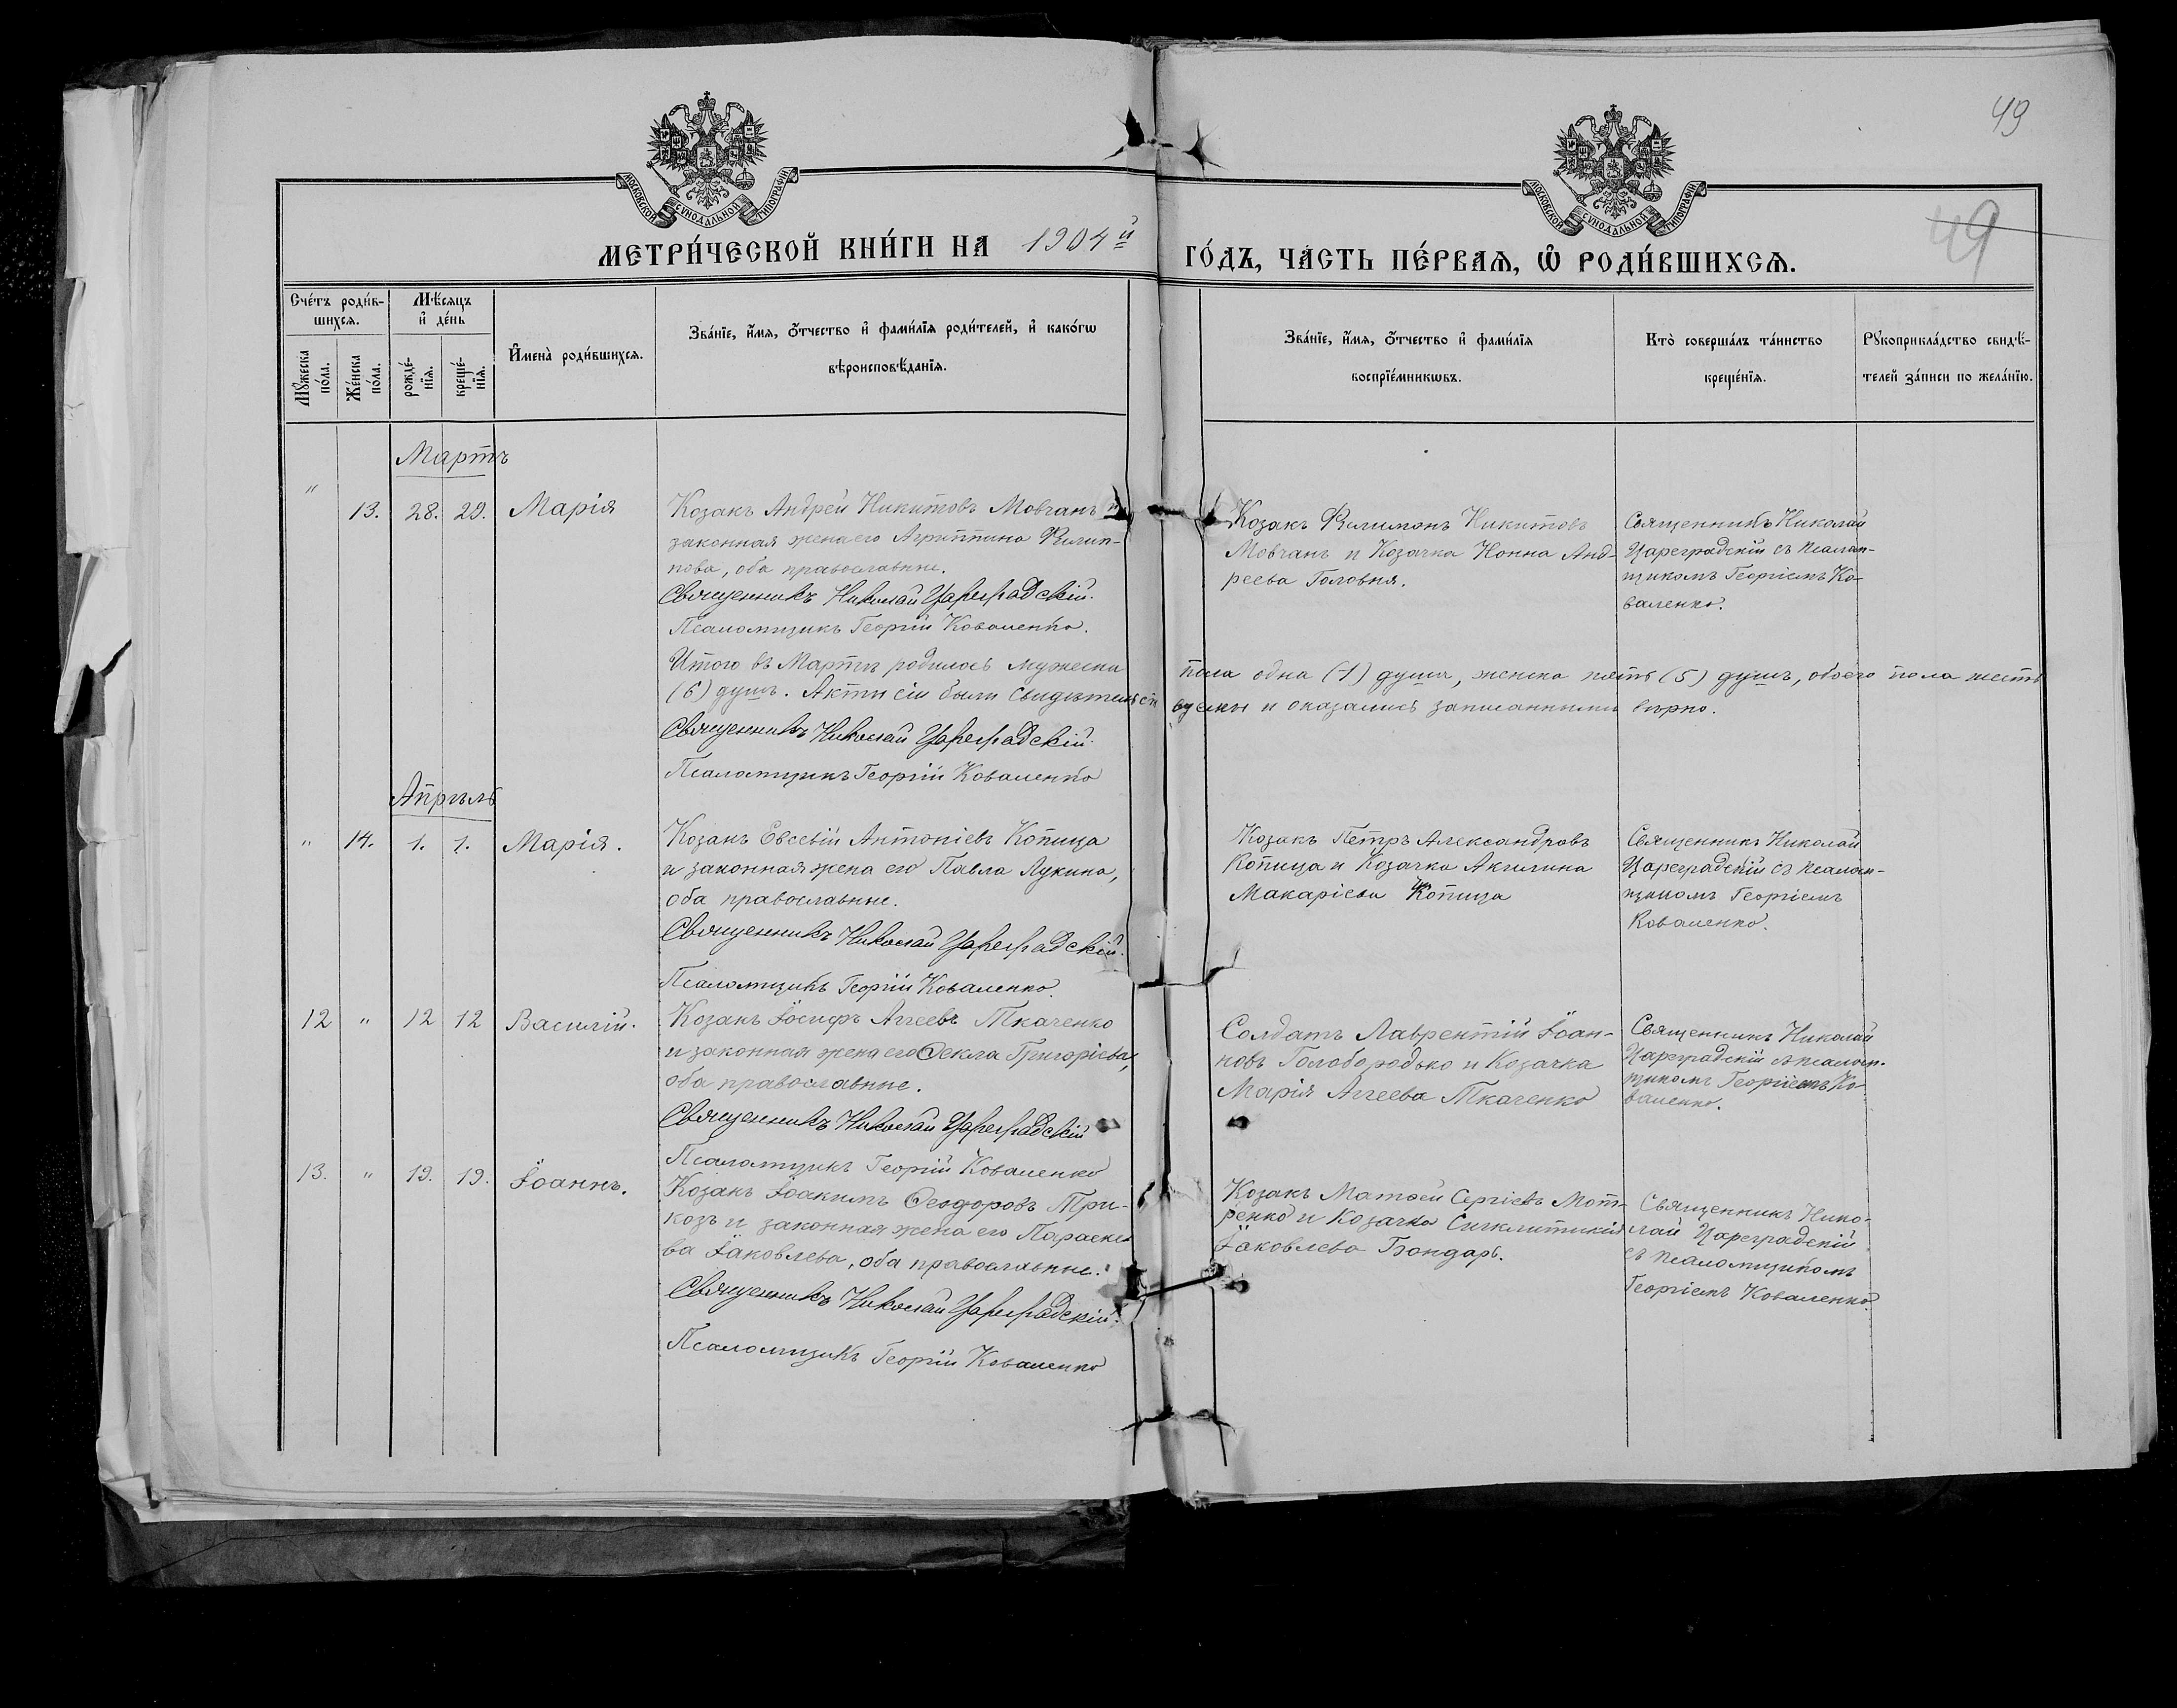 49
МОСКОВСКОЙ СУНОДАЛЬНОЙ ТИПОГРАФІИ
МОСКОВСКОЙ СУНОДАЛЬНОЙ ТИПОГРАФІИ
49
МЕТРИ́ЧЕСКОЙ КНИ́ГИ НА 1904й ГО́ДЪ, ЧА́СТЬ ПЕ́РВАЯ, Ѡ РОДИ́ВШИХСЯ.
Сче́тъ роди́в-
шихся.
Мѣ́сяцъ
и҆ де́нь
Мꙋ́жеска
по́ла.
Же́нска
по́ла.
рожде́-
нїя.
креще́-
нїя.
И҆мена̀ роди́вшихся.
Зва́нїе, и҆́мя, ѻ҆́тчество и҆ фами́лїя роди́телей, и҆ како́гѡ
вѣроисповѣ́данїя.
Зва́нїе, и҆́мя, ѻ҆́тчество и҆ фами́лїя
воспрїе́мникѡвъ.
Кто̀ соверша́лъ та́инство
креще́нїя.
Рꙋкоприкла́дство свидѣ́-
телей за́писи по жела́нїю.
Мартъ
" 13. 28. 29. Марія
Козакъ Андрей Никитовъ Мовчанъ и
законная жена его Агриппина Филип-
пова, оба православные.
Священникъ Николай Цареградскій.
Псаломщикъ Георгій Коваленко.
Козакъ Филимонъ Никитовъ
Мовчанъ и Козачка Нонна Анд-
реева Головня.
Священникъ Николай
Цареградскій съ псалом-
щикомъ Георгіемъ Ко-
валенко.
Итого въ Мартѣ родилось мужеска пола одна (1) душа, женска пять (5) душъ, обоего пола шесть
(6) душъ. Акты сіи были свидѣтельст вуемы и оказались записанными вѣрно.
Священникъ Николай Цареградскій.
Псаломщикъ Георгій Коваленко
Апрѣль
" 14. 1. 1. Марія.
Козакъ Евсевій Антоніевъ Копица
и законная жена его Павла Лукина,
оба православные.
Священникъ Николай Цареградскій.
Псаломщикъ Георгій Коваленко.
Козакъ Петръ Александровъ
Копица и Козачка Акилина
Макаріева Копица
Священникъ Николай
Цареградскій съ псалом-
щикомъ Георгіемъ
Коваленко.
12 " 12 12 Василій.
Козакъ Іосифъ Аггеевъ Ткаченко
и законная жена его Ѳекла Григоріева,
оба православные.
Священникъ Николай Цареградскій
Псаломщикъ Георгій Коваленко
Солдатъ Лаврентій Іоан-
новъ Голобородько и Козачка
Марія Аггеева Ткаченко
Священникъ Николай
Цареградскій съ псалом-
щикомъ Георгіемъ Ко-
валенко.
13. " 19. 19. Іоаннъ.
Козакъ Іоакимъ Ѳеодоровъ Три-
козъ и законная жена его Параске-
ва Іаковлева, оба православные.
Священникъ Николай Цареградскій.
Псаломщикъ Георгій Коваленко
Козакъ Матѳей Сергіевъ Мот-
ренко и Козачка Сигклитикія
Іаковлева Бондарь.
Священникъ Нико-
лай Цареградскій
съ псаломщикомъ
Георгіемъ Коваленко.